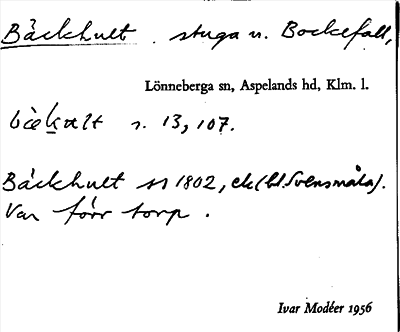 Bäckhult. stuga u. Bockefall,
Lönneberga sn, Aspelands hd, Klm. l.
s. 13, 107.
Bäckhult sn 1802, ek (bl. Svensmåla).
Var förr torp.
Ivar Modéer 1956